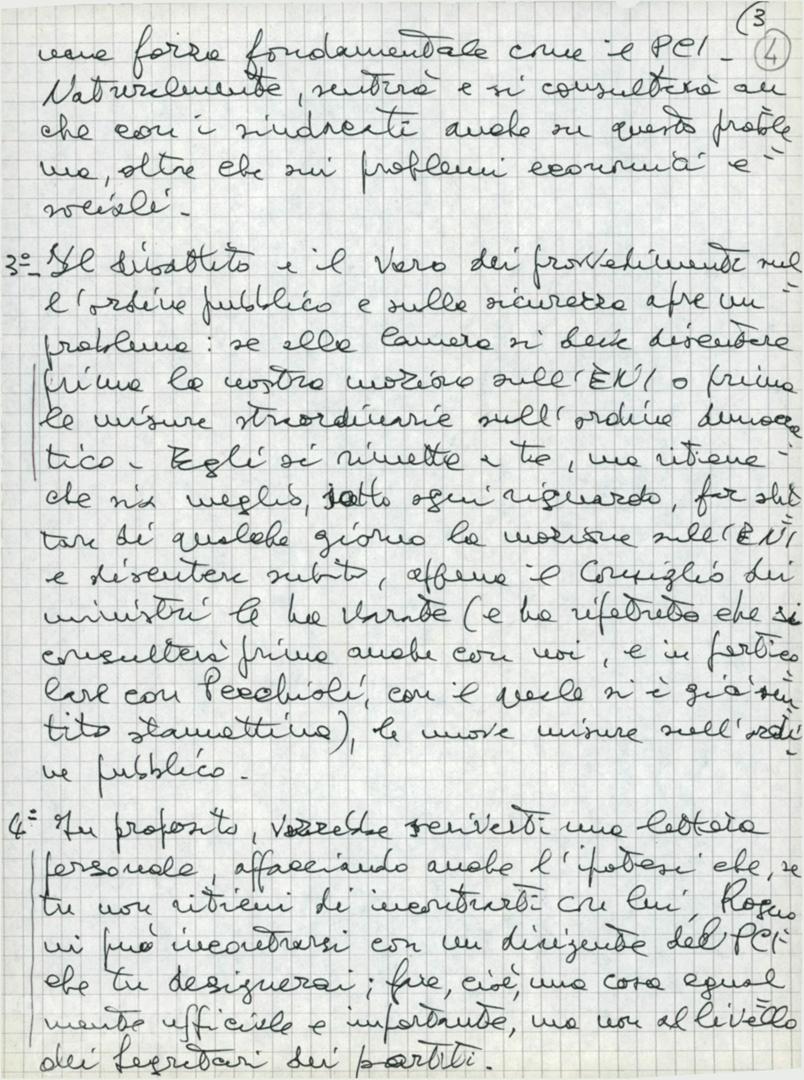 (3
4
una forza fondamentale come il PCI -
Naturalmente, sentirà e si consulterà an
che con i sindacati anche su questo proble
ma, oltre che sui problemi economici e
sociali -
3º- Il dibattito e il varo dei provvedimenti sul
l'ordine pubblico e sulla sicurezza apre un
problema: se alla Camera si deve discutere
prima la nostra mozione sull'ENI o prima
le misure straordinarie sull'ordine democra
tico - Egli si rimette a te, ma ritiene
che sia meglio, sotto ogni riguardo, far slit
tare di qualche giorno la mozione sull'ENI
e discutere subito, appena il Consiglio dei
ministri le ha varate (e ha ripetuto che si
consulterà prima anche con noi, e in partico
lare con Pecchioli, con il quale si è già sen
tito stamattina), le nuove misure sull'ordi
ne pubblico -
4º In proposito, vorrebbe scriverti una lettera
personale, affacciando anche l'ipotesi che, se
tu non ritieni di incontrarti con lui, Rogno
ni può incontrarsi con un dirigente del PCI
che tu designerai; fare, cioè, una cosa egual
mente ufficiale e importante, ma non al livello
dei Segretari dei partiti.